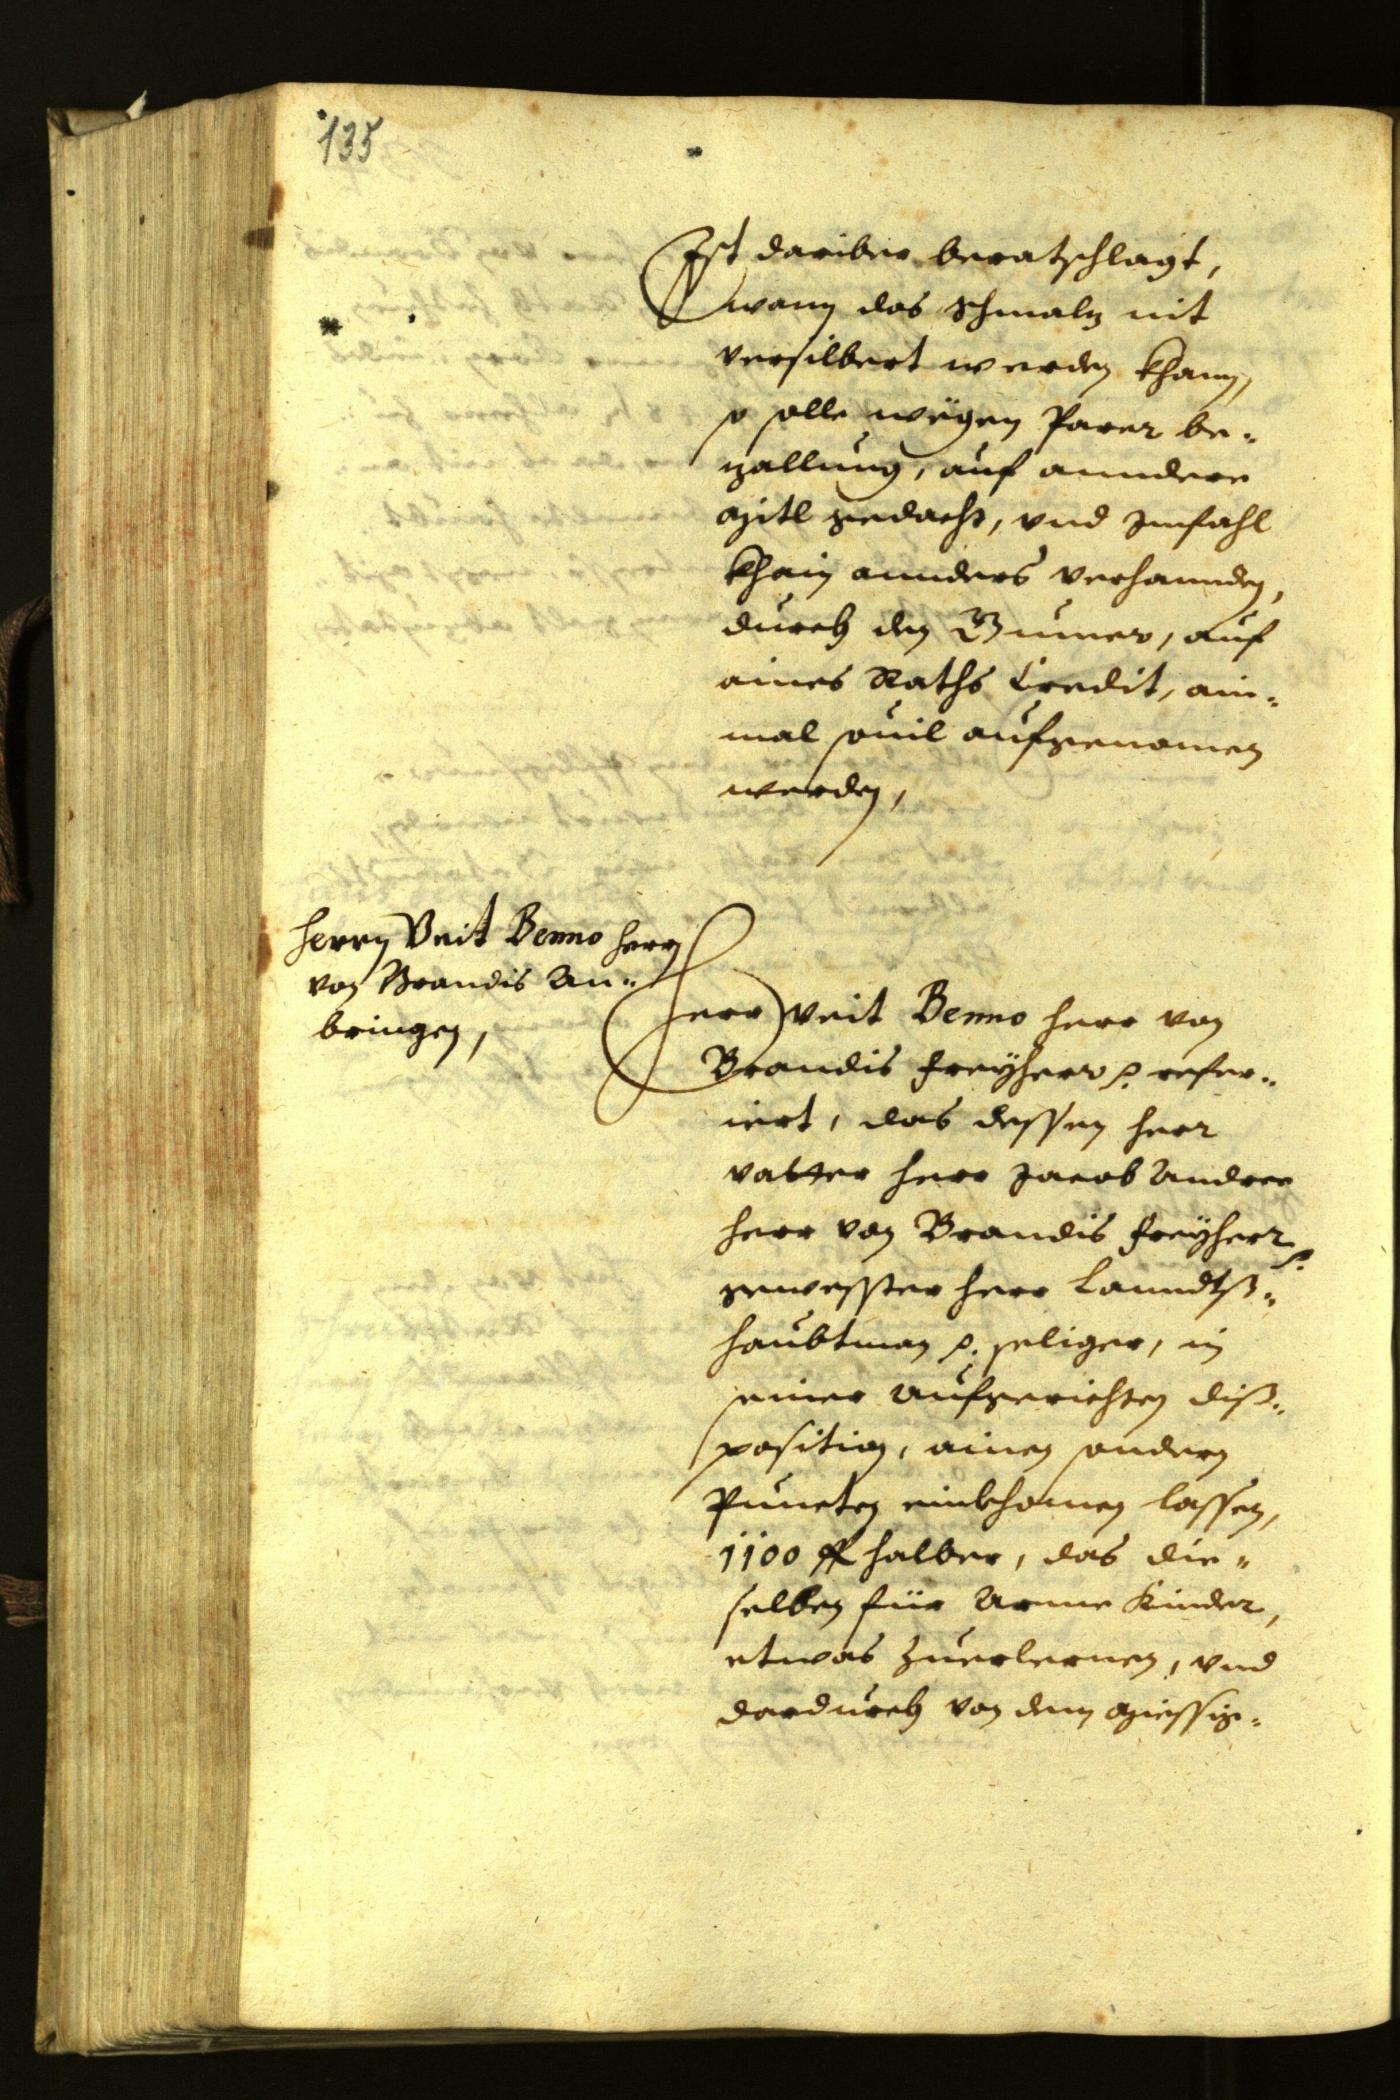 135
Ist dariber beratschlagt,
wann das Schmalz nit
versilbert werden khann,
so solle wëgen Parer be-
zallung, auf anndere
mitl gedacht, vnd Imfahl
khain annders verhannden,
durch den Bumer, auf
aines Raths Credit, ain-
mal souil aufgenomen
werden,
Herrn Veit Benno Herrn
von Brandis An-
bringen,
Herr Veit Benno Herr von
Brandis Freÿherr p. refer-
iert, das dessen Herr
vatter Herr Jacob Andree
Herr von Brandis Freÿherr p.
gewesster Herr Lanndtß-
haubtman p. seliger, in
seiner aufgerichten diß-
position, ainen sondern
Puncten einkhomen lassen,
1100 fl halber, das die-
selben für Arme Kinder,
etwas zuerlernen, vnd
dardurch von dem miessig-